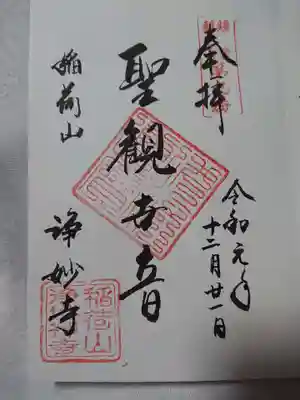 奉拝
令和元年
十二月廿一日
聖観世音
稲荷山
浄妙寺
稲荷山
浄妙寺